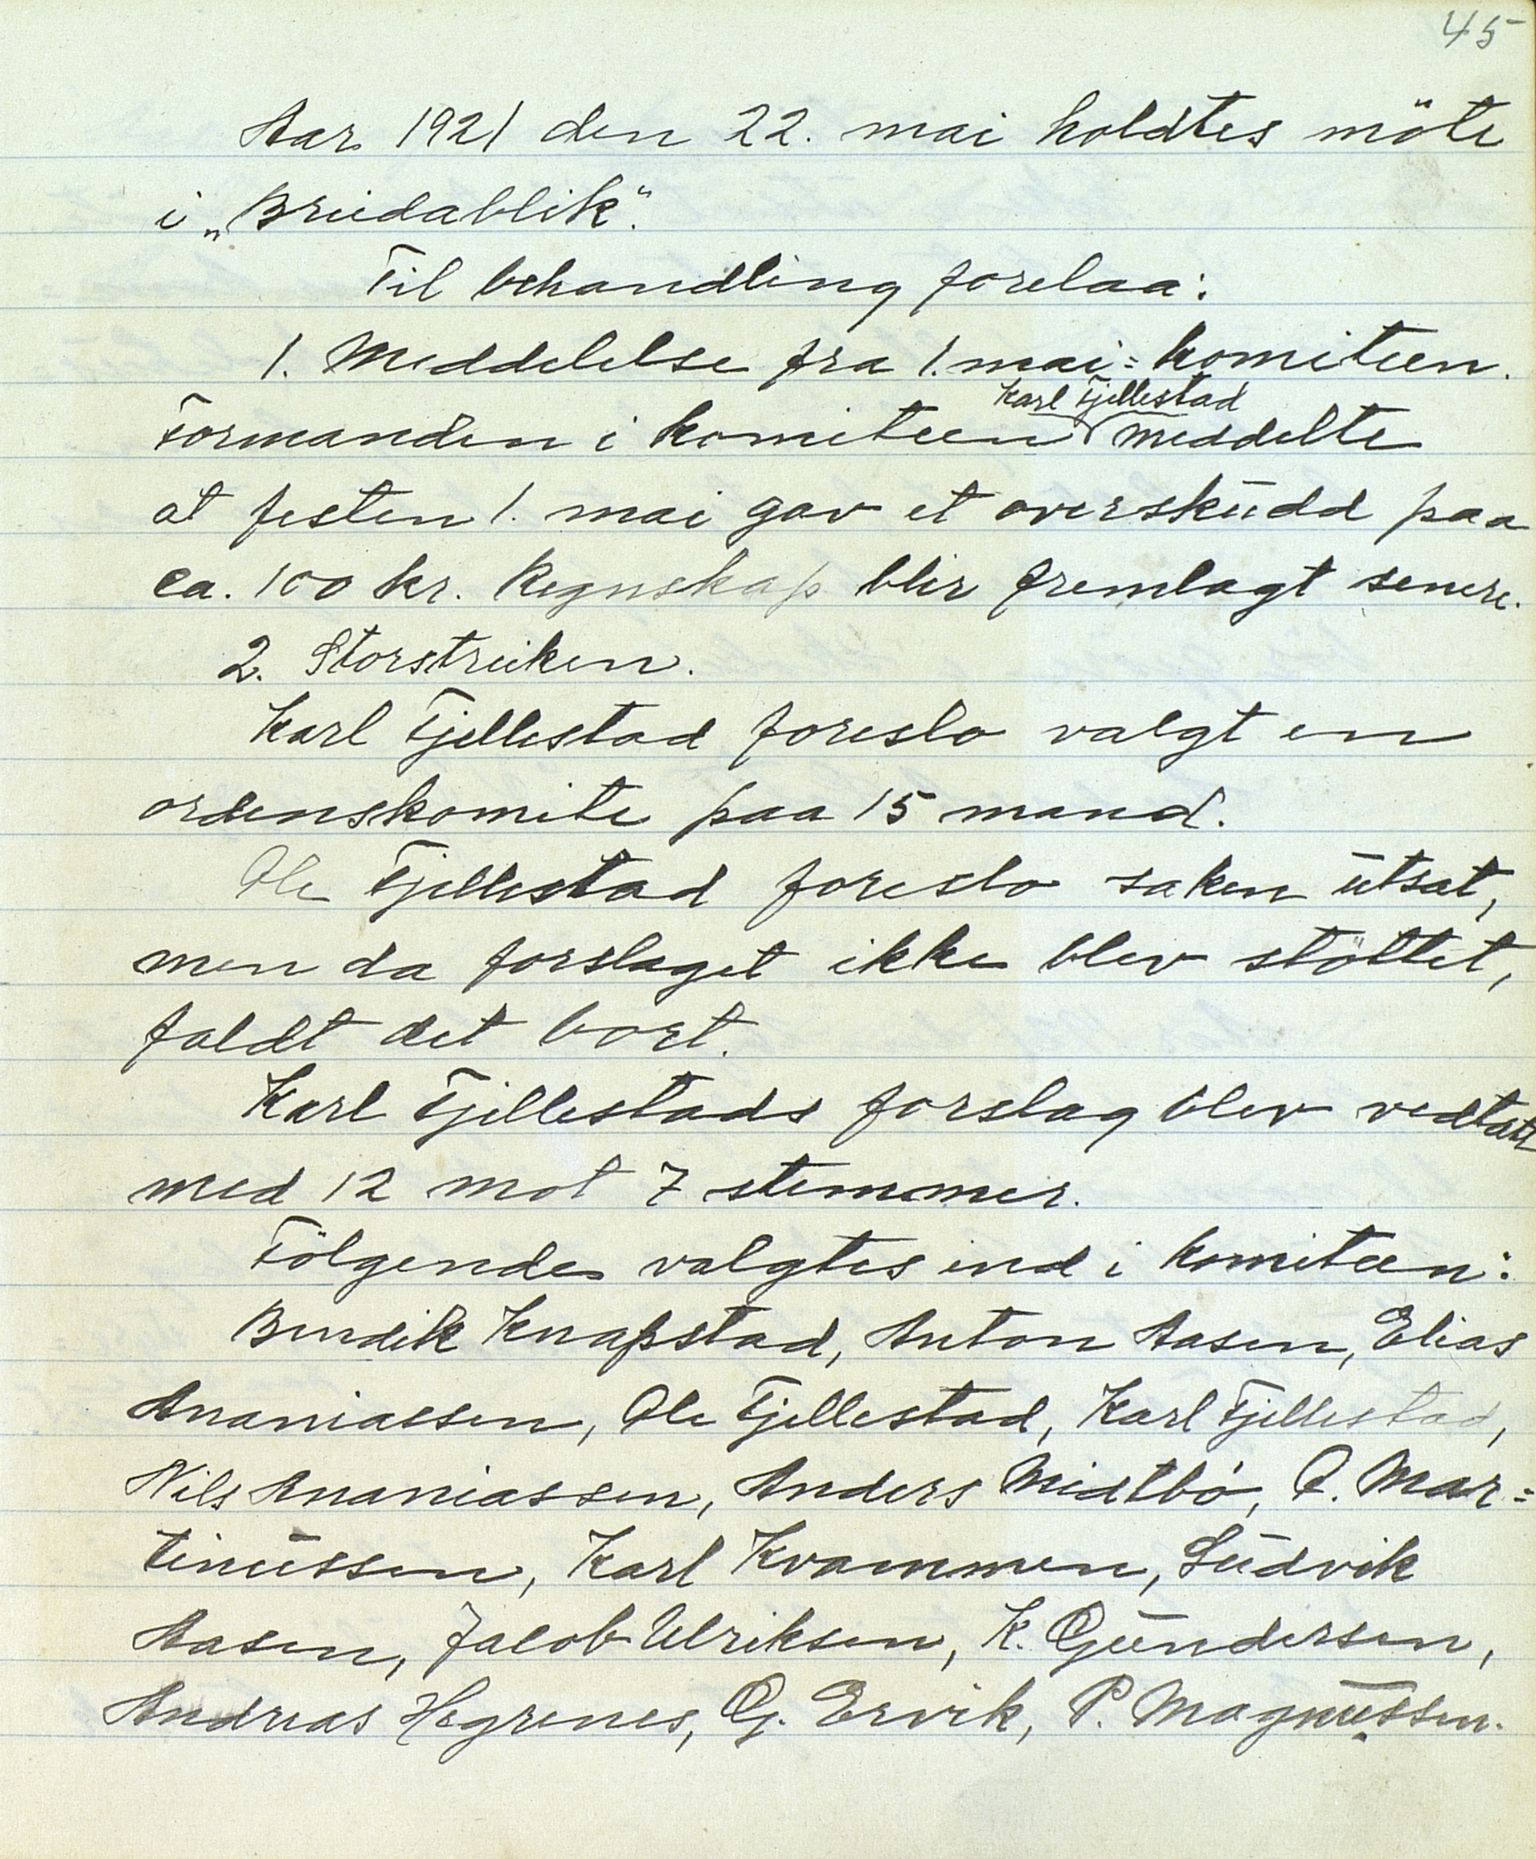 45
Aar 1921 den 22. mai holdtes möte
i „Breidablik".
Til behandling forelaa:
1. Meddelelse fra 1. mai=komiteen.
Karl Fjellestad
Formanden i komiteen meddelte
at festen 1. mai gav et overskudd paa
ca. 100 kr. Regnskap blir fremlagt senere.
2. Storstreiken.
Karl Fjellestad foreslo valgt en
ordenskomite paa 15 mand.
Ole Fjellestad foreslo saken utsat,
men da forslaget ikke blev stöttet,
faldt det bort.
Karl Fjellestads forslag blev vedtatt
med 12 mot 7 stemmer.
Fölgende valgtes ind i komiteen:
Bendik Knapstad, Anton Aasen, Elias
Ananiassen, Ole Fjellestad, Karl Fjellestad,
Nils Ananiassen, Anders Midtbö, P. Mar=
tinussen, Karl Kvammen, Ludvik
Aasen, Jacob Ulriksen, K. Gundersen,
Andreas Hegrenes, G. Ervik, P. Magnussen.